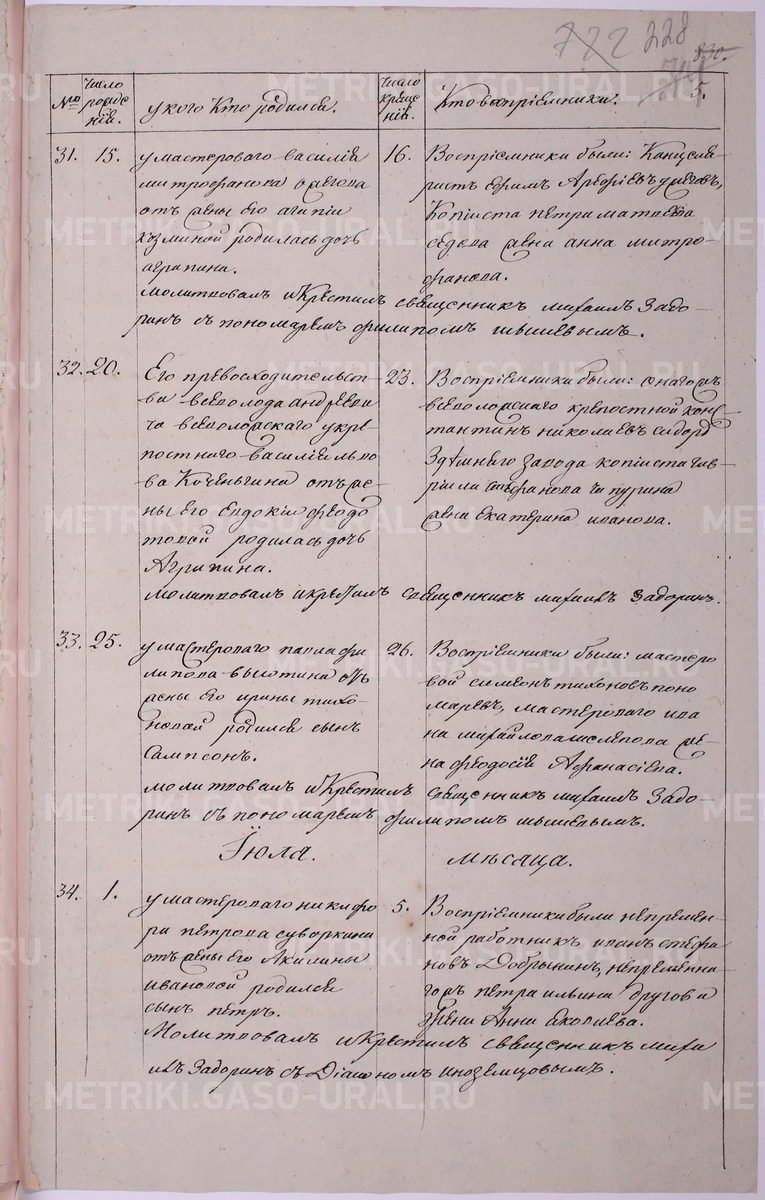 722 228
№ Число рожде нія. у кого Кто родился. Число креще нія. Кто воспріемники. 5.
31. 15. у мастероваго василія
митрофанова
отъ жены его агапіи
козминой родилась дочь
агрипина.
16. Воспріемники были: Канцеля
ристъ ефимъ Арефіевъ
копіиста петра матвеева
седова жена анна митро-
фанова.
молитвовалъ и Крестилъ священникъ михаилъ Задо-
ринъ съ пономаремъ филипомъ мышевымъ.
32. 20. Его превосходительст-
ва всеволода андрееви
ча всеволожскаго у кре
постнаго василія льво
ва Коченьгина отъ же-
ны его евдокіи федо
товой родилась дочь
Агрипина.
23. Воспріемники были: онагожъ
всеволожскаго крепостной конс-
тантинъ николаевъ
здѣшнего завода копіиста гав-
рила стефанова чепурина
жена екатерина иванова.
молитвовалъ и крестилъ священникъ михаилъ Задоринъ.
33. 25. у мастероваго павла фи
липова вьютина отъ
жены его ирины тихо-
новой родился сынъ
Сампсонъ.
26. Воспріемники были: мастеро
вой симеонъ тихоновъ поно
маревъ, мастероваго ива
на михайлова шелепова же-
на феодосія Афанасіева.
молитвовалъ и Крестилъ священникъ михаилъ Задо-
ринъ съ пономаремъ филипомъ мышевымъ.
Іюля. мѣсяца.
34. 1. у мастероваго никифо
ра петрова суворкина
отъ жены его Акилины
ивановой родился
сынъ петръ.
5. Воспріемники были непремен-
ной работникъ иванъ стефа
новъ Добрынинъ, непременна
гожъ петра ильина другова
жена Анна яковлева.
Молитвовалъ и Крестилъ священникъ миха
илъ Задоринъ съ Діакономъ иноземцовымъ.
METRIKI.GASO-URAL.RU